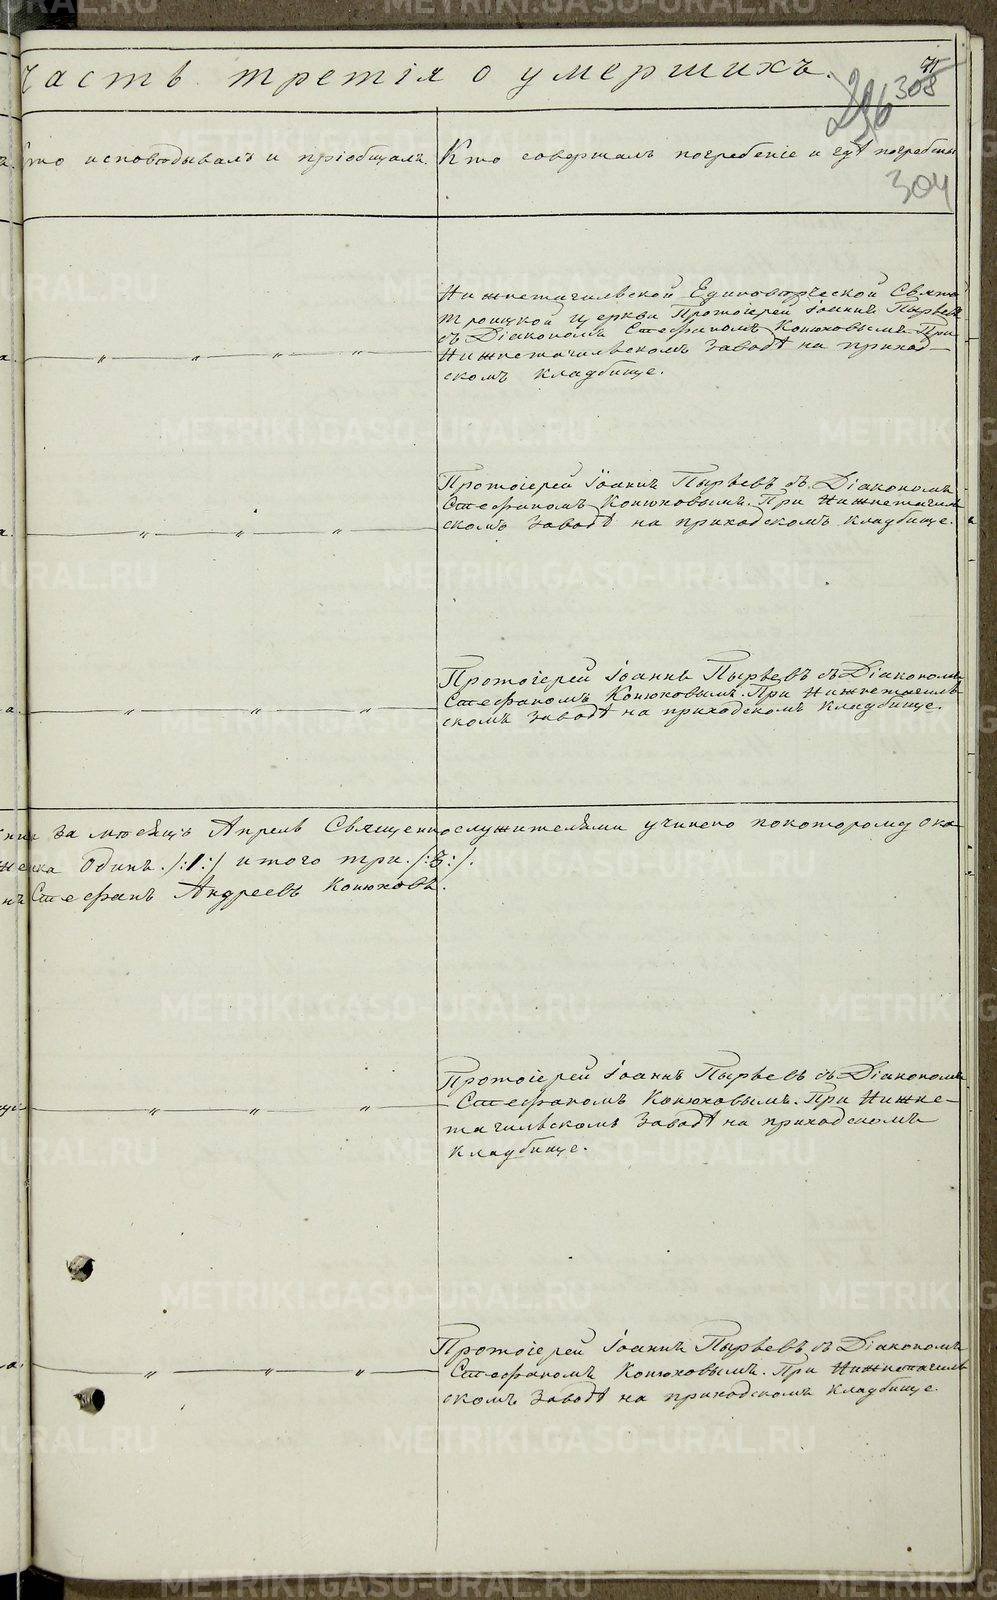 Часть третія о умершихъ.
308
296
304
Кто исповѣдывалъ и пріобщалъ.
Кто совершалъ погребеніе и гдѣ погребены
Нижнетагильской Единовѣрческой Свято
Троицкой церкви Протоіерей Іоаннъ Пырьевъ
съ Діакономъ Стефаномъ Конюховымъ. При
Нижнетагильскомъ Заводѣ на приход-
скомъ кладбище.
Протоіерей Іоаннъ Пырьевъ съ Діакономъ
Стефаномъ Конюховымъ. При Нижнетагиль
скомъ Заводѣ на приходскомъ кладбище.
Протоіерей Іоаннъ Пырьевъ съ Діакономъ
Стефаномъ Конюховымъ. При Нижнетагиль
скомъ Заводѣ на приходскомъ кладбище.
за мѣсяцъ Апрель Священнослужителями учинено покоторому ока
Одинъ /:1:/ итого три /:3:/.
Стефанъ Андреевъ Конюховъ.
Протоіерей Іоаннъ Пырьевъ съ Діакономъ
Стефаномъ Конюховымъ. При Нижне-
тагильскомъ Заводѣ на приходскомъ
кладбище.
Протоіерей Іоаннъ Пырьевъ съ Діакономъ
Стефаномъ Конюховымъ. При Нижнетагиль
скомъ Заводѣ на приходскомъ кладбище.
METRIKI.GASO-URAL.RU